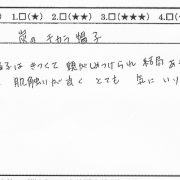 1.□(★) 2.□(★★) 3.□(★★★) 4.□(★
炭の チカラ 帽子
子は きつくて 頭がしめつけられ 結局 あ
肌触いが良く とても 気に いり